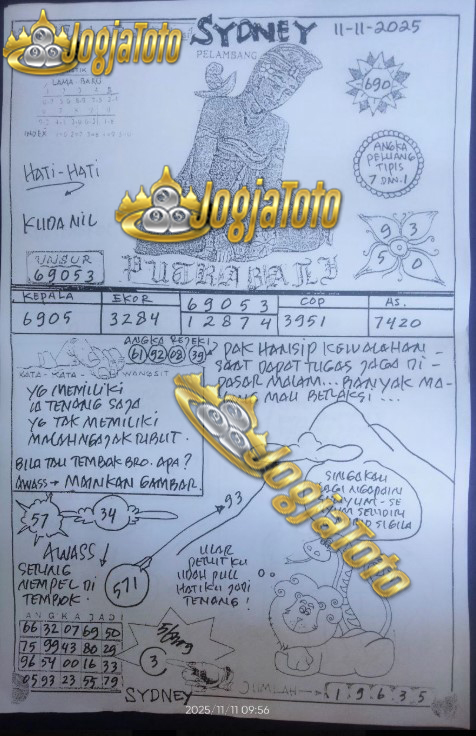 JogjaToto
SYDNEY
11-11-2025
PELAMBANG
LAMA - BARU
INDEX
690
HATI-HATI
ANGKA
PELUANG
TIPIS
7 DAN 1
JogjaToto
KUDA NIL
9 3
5 0
UNSUR
69053
PUTRA BALI
KEPALA
EKOR
69053
COP
AS.
6905
3284
12874
3951
7420
ANGKA REJEKI
61 92 08 39
KATA - KATA WANGSIT
PAK HANSIP KEWALAHAN
SAAT DAPAT TUGAS JAGA DI -
PASAR MALAM... BANYAK MA-
MAU BERAKSI ...
YG MEMILIKI
TENANG SAJA
YG TAK MEMILIKI
MALAH NGAJAK RIBUT.
BILA TAU TEMBAK BRO. APA?
AWASS → MAINKAN GAMBAR.
JogjaToto
57
34
93
571
AWASS
SERING
NEMPEL DI
TEMBOK!
ULAR
PERUTKU
UDAH FULL
HATIKU JADI
TENANG!
ANGKA JADI
66 32 07 69 50
75 99 43 80 29
96 54 00 16 33
05 93 23 55 79
3
SYDNEY
JUMLAH
19635
2025/11/11 09:56